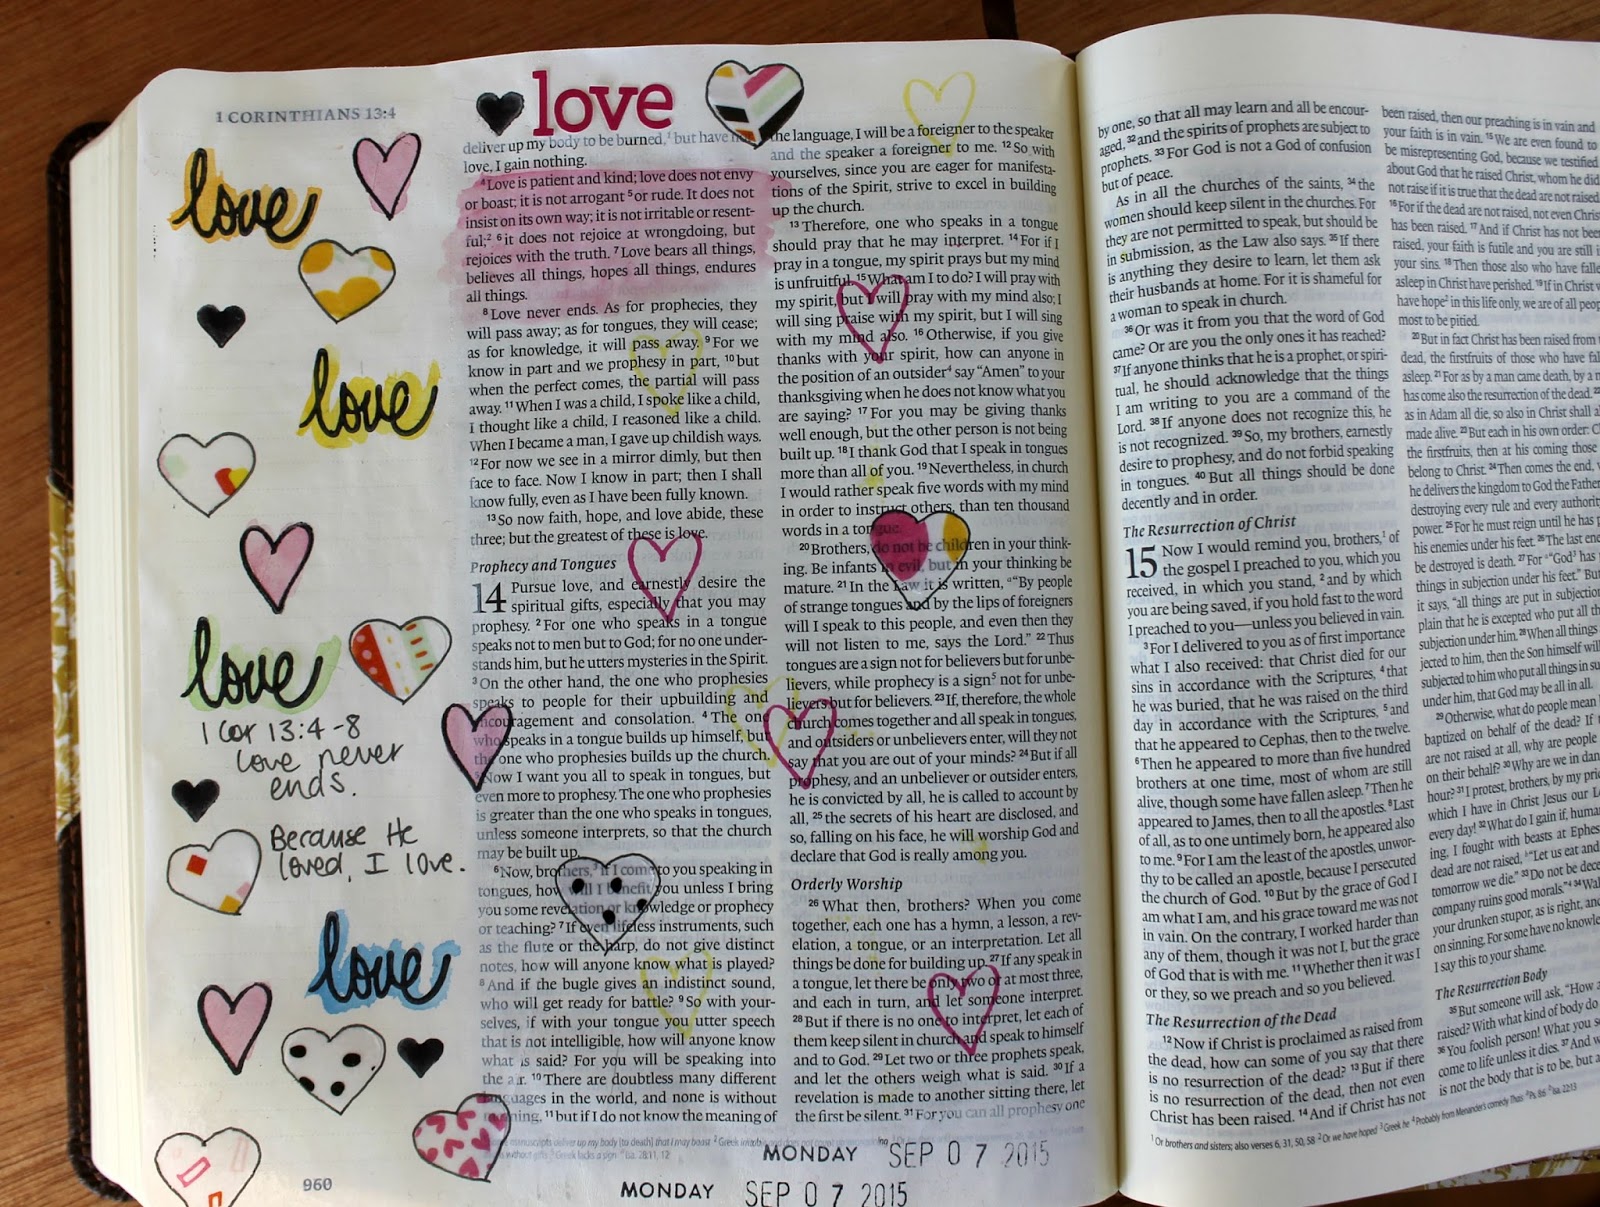 1 CORINTHIANS 13:4
love
love
love
love
1 Cor 13:4-8
Love never
ends.
Because He
loved, I love.
love
960
love
deliver up my body to be burned,¹ but have not
love, I gain nothing.
⁴Love is patient and kind; love does not envy
or boast; it is not arrogant ⁵or rude. It does not
insist on its own way; it is not irritable or resent-
ful;² ⁶it does not rejoice at wrongdoing, but
rejoices with the truth. ⁷Love bears all things,
believes all things, hopes all things, endures
all things.
⁸Love never ends. As for prophecies, they
will pass away; as for tongues, they will cease;
as for knowledge, it will pass away. ⁹For we
know in part and we prophesy in part, ¹⁰but
when the perfect comes, the partial will pass
away. ¹¹When I was a child, I spoke like a child,
I thought like a child, I reasoned like a child.
When I became a man, I gave up childish ways.
¹²For now we see in a mirror dimly, but then
face to face. Now I know in part; then I shall
know fully, even as I have been fully known.
¹³So now faith, hope, and love abide, these
three; but the greatest of these is love.
Prophecy and Tongues
14 Pursue love, and earnestly desire the
spiritual gifts, especially that you may
prophesy. ²For one who speaks in a tongue
speaks not to men but to God; for no one under-
stands him, but he utters mysteries in the Spirit.
³On the other hand, the one who prophesies
speaks to people for their upbuilding and
encouragement and consolation. ⁴The one
who speaks in a tongue builds up himself, but
the one who prophesies builds up the church.
⁵Now I want you all to speak in tongues, but
even more to prophesy. The one who prophesies
is greater than the one who speaks in tongues,
unless someone interprets, so that the church
may be built up.
⁶Now, brothers,³ if I come to you speaking in
tongues, how will I benefit you unless I bring
you some revelation or knowledge or prophecy
or teaching? ⁷If even lifeless instruments, such
as the flute or the harp, do not give distinct
notes, how will anyone know what is played?
⁸And if the bugle gives an indistinct sound,
who will get ready for battle? ⁹So with your-
selves, if with your tongue you utter speech
that is not intelligible, how will anyone know
what is said? For you will be speaking into
the air. ¹⁰There are doubtless many different
languages in the world, and none is without
meaning, ¹¹but if I do not know the meaning of
the language, I will be a foreigner to the speaker
and the speaker a foreigner to me. ¹²So with
yourselves, since you are eager for manifesta-
tions of the Spirit, strive to excel in building
up the church.
¹³Therefore, one who speaks in a tongue
should pray that he may interpret. ¹⁴For if I
pray in a tongue, my spirit prays but my mind
is unfruitful. ¹⁵What am I to do? I will pray with
my spirit, but I will pray with my mind also; I
will sing praise with my spirit, but I will sing
with my mind also. ¹⁶Otherwise, if you give
thanks with your spirit, how can anyone in
the position of an outsider⁴ say “Amen” to your
thanksgiving when he does not know what you
are saying? ¹⁷For you may be giving thanks
well enough, but the other person is not being
built up. ¹⁸I thank God that I speak in tongues
more than all of you. ¹⁹Nevertheless, in church
I would rather speak five words with my mind
in order to instruct others, than ten thousand
words in a tongue.
²⁰Brothers, do not be children in your think-
ing. Be infants in evil, but in your thinking be
mature. ²¹In the Law it is written, “By people
of strange tongues and by the lips of foreigners
will I speak to this people, and even then they
will not listen to me, says the Lord.” ²²Thus
tongues are a sign not for believers but for unbe-
lievers, while prophecy is a sign⁵ not for unbe-
lievers but for believers. ²³If, therefore, the whole
church comes together and all speak in tongues,
and outsiders or unbelievers enter, will they not
say that you are out of your minds? ²⁴But if all
prophesy, and an unbeliever or outsider enters,
he is convicted by all, he is called to account by
all, ²⁵the secrets of his heart are disclosed, and
so, falling on his face, he will worship God and
declare that God is really among you.
Orderly Worship
²⁶What then, brothers? When you come
together, each one has a hymn, a lesson, a rev-
elation, a tongue, or an interpretation. Let all
things be done for building up. ²⁷If any speak in
a tongue, let there be only two or at most three,
and each in turn, and let someone interpret.
²⁸But if there is no one to interpret, let each of
them keep silent in church and speak to himself
and to God. ²⁹Let two or three prophets speak,
and let the others weigh what is said. ³⁰If a
revelation is made to another sitting there, let
the first be silent. ³¹For you can all prophesy one
MONDAY SEP 07 2015
MONDAY SEP 07 2015
by one, so that all may learn and all be encour-
aged, ³²and the spirits of prophets are subject to
prophets. ³³For God is not a God of confusion
but of peace.
As in all the churches of the saints, ³⁴the
women should keep silent in the churches. For
they are not permitted to speak, but should be
in submission, as the Law also says. ³⁵If there
is anything they desire to learn, let them ask
their husbands at home. For it is shameful for
a woman to speak in church.
³⁶Or was it from you that the word of God
came? Or are you the only ones it has reached?
³⁷If anyone thinks that he is a prophet, or spiri-
tual, he should acknowledge that the things
I am writing to you are a command of the
Lord. ³⁸If anyone does not recognize this, he
is not recognized. ³⁹So, my brothers, earnestly
desire to prophesy, and do not forbid speaking
in tongues. ⁴⁰But all things should be done
decently and in order.
The Resurrection of Christ
15 Now I would remind you, brothers,¹ of
the gospel I preached to you, which you
received, in which you stand, ²and by which
you are being saved, if you hold fast to the word
I preached to you—unless you believed in vain.
³For I delivered to you as of first importance
what I also received: that Christ died for our
sins in accordance with the Scriptures, ⁴that
he was buried, that he was raised on the third
day in accordance with the Scriptures, ⁵and
that he appeared to Cephas, then to the twelve.
⁶Then he appeared to more than five hundred
brothers at one time, most of whom are still
alive, though some have fallen asleep. ⁷Then he
appeared to James, then to all the apostles. ⁸Last
of all, as to one untimely born, he appeared also
to me. ⁹For I am the least of the apostles, unwor-
thy to be called an apostle, because I persecuted
the church of God. ¹⁰But by the grace of God I
am what I am, and his grace toward me was not
in vain. On the contrary, I worked harder than
any of them, though it was not I, but the grace
of God that is with me. ¹¹Whether then it was I
or they, so we preach and so you believed.
The Resurrection of the Dead
¹²Now if Christ is proclaimed as raised from
the dead, how can some of you say that there
is no resurrection of the dead? ¹³But if there
is no resurrection of the dead, then not even
Christ has been raised. ¹⁴And if Christ has not
been raised, then our preaching is in vain and
your faith is in vain. ¹⁵We are even found to
be misrepresenting God, because we testified
about God that he raised Christ, whom he did
not raise if it is true that the dead are not raised
¹⁶For if the dead are not raised, not even Christ
has been raised. ¹⁷And if Christ has not been
raised, your faith is futile and you are still i
your sins. ¹⁸Then those also who have falle
asleep in Christ have perished. ¹⁹If in Christ v
have hope² in this life only, we are of all peop
most to be pitied.
²⁰But in fact Christ has been raised from
dead, the firstfruits of those who have fal
asleep. ²¹For as by a man came death, by a m
has come also the resurrection of the dead. ²²
as in Adam all die, so also in Christ shall al
made alive. ²³But each in his own order: C
the firstfruits, then at his coming those
belong to Christ. ²⁴Then comes the end, v
he delivers the kingdom to God the Father
destroying every rule and every authority
power. ²⁵For he must reign until he has p
his enemies under his feet. ²⁶The last ene
to be destroyed is death. ²⁷For “God³ has p
things in subjection under his feet.” But
it says, “all things are put in subjection
plain that he is excepted who put all th
subjection under him. ²⁸When all things
jected to him, then the Son himself will
subjected to him who put all things in su
under him, that God may be all in all.
²⁹Otherwise, what do people mean b
baptized on behalf of the dead? If t
are not raised at all, why are people
on their behalf? ³⁰Why are we in dan
hour? ³¹I protest, brothers, by my prid
which I have in Christ Jesus our L
every day! ³²What do I gain if, human
ing, I fought with beasts at Ephes
dead are not raised, “Let us eat and
tomorrow we die.” ³³Do not be dece
company ruins good morals.”⁴ ³⁴Wal
your drunken stupor, as is right, an
on sinning. For some have no know
I say this to your shame.
The Resurrection Body
³⁵But someone will ask, “How a
raised? With what kind of body do
³⁶You foolish person! What you s
come to life unless it dies. ³⁷And w
is not the body that is to be, but a
¹Or brothers and sisters; also verses 6, 31, 50, 58 ²Or we have hoped ³Greek he ⁴Probably from Menander's comedy Thais